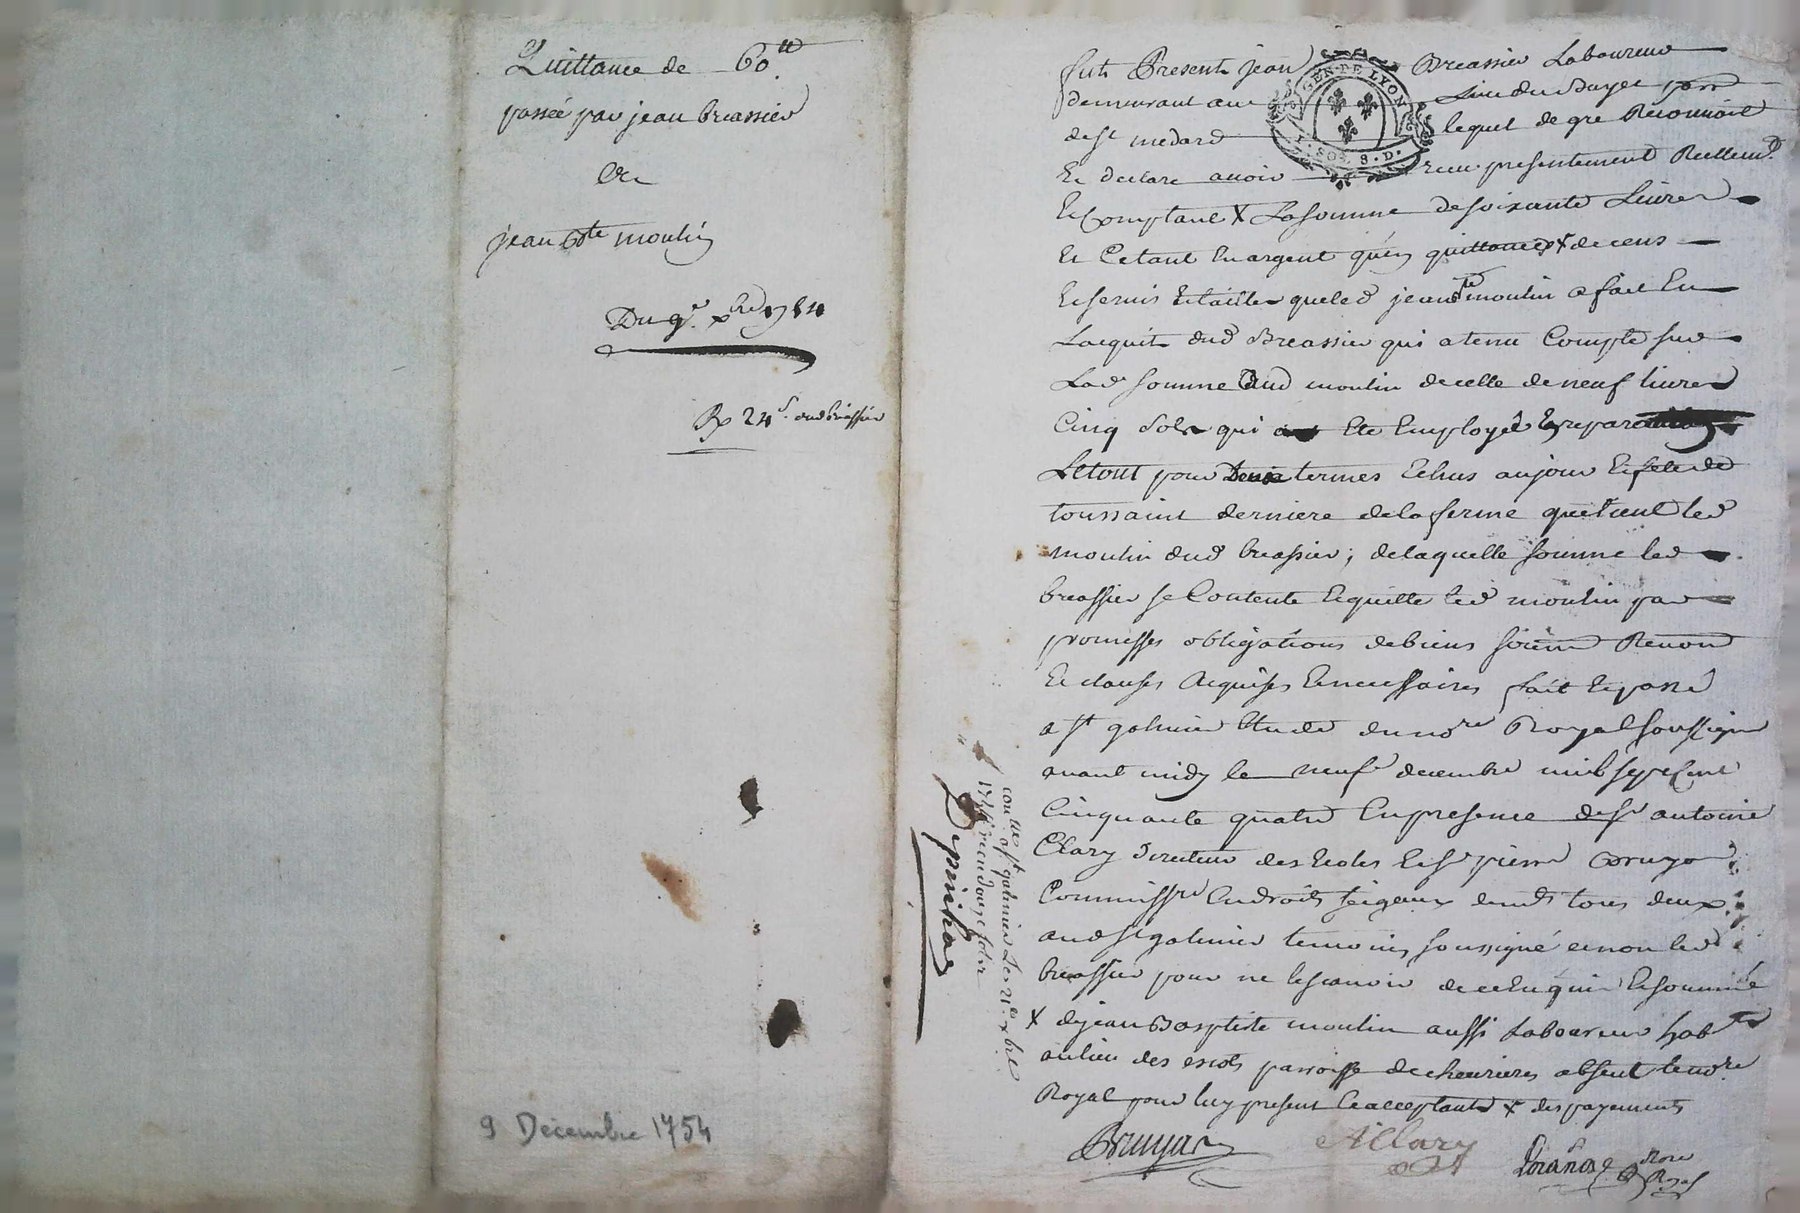 Quittance de 60ᵗᵗ
passée par jean breassier
a
jean bte moulin
Du 9e xbre 1754
Rp 24 s. dud breassier
9 Décembre 1754
GEN. DE LYON
1. SOL. 8. D.
fut Present jean Breassier Laboureur
demeurant au Lieu du parr
de st medard lequel de gré Reconnoit
Et declare avoir receu presentement Reellemt
Et Comptant X La somme de soixante Livres
Et Cetant En argent qu'en quittances X de cens
Et servis Et tailles que led jean bte moulin a fait En
Lacquit dud Breassier qui a tenu Compte sur
Lad somme aud moulin de celle de neuf livres
Cinq sols qui a Eté Employé En reparations
Le tout pour Deux termes Echus au jour Et fete de
toussaint derniere de la ferme que tient led
moulin dud breassier; de laquelle somme led
breassier se Contente Et quitte led moulin par
promesses obligations de biens soumis Renon
Et clauses Requises Et necessaires fait Et passé
a st galmier Etude du nore Royal soussigné
avant midy le neufe decembre mil sept cent
Cinquante quatre En presence de sr antoine
Clary Directeur des Ecoles Et sr pierre bruyar
Commissre En droits seigeaux demts tous deux
aud st galmier temoins soussigné et non led
breassier pour ne le scavoir de ce Enquis Et sommé
X de jean Baptiste moulin aussi Laboureur habt
au lieu des escots parroisse de chevrieres absent le nore
Royal pour luy present Et acceptant X des payements
Bruyar
A Clary
nore Royal
conlle a st galmier le 21e xbre
1754 receu douze sols